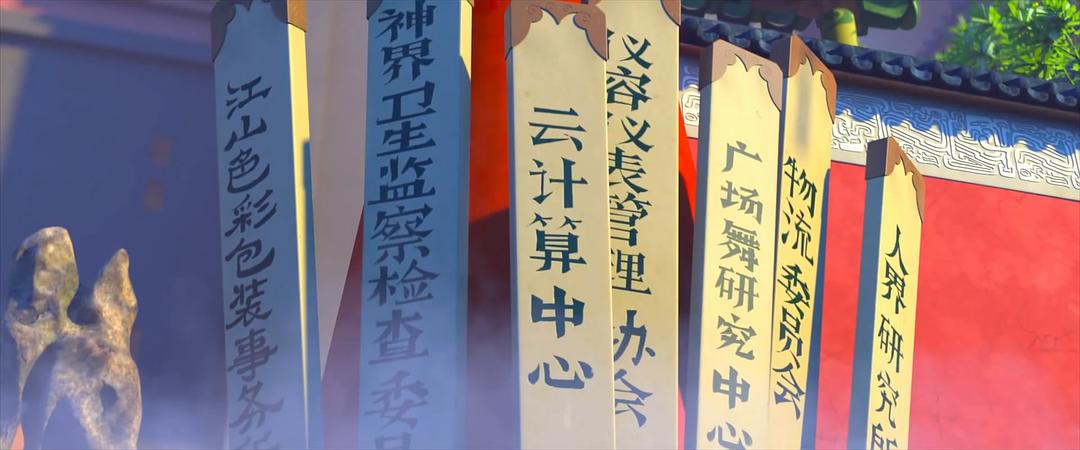 江山色彩包装事务所
神界卫生监察检查委员
云计算中心
仪容仪表管理办会
广场舞研究中心
物流委员会
人界研究所